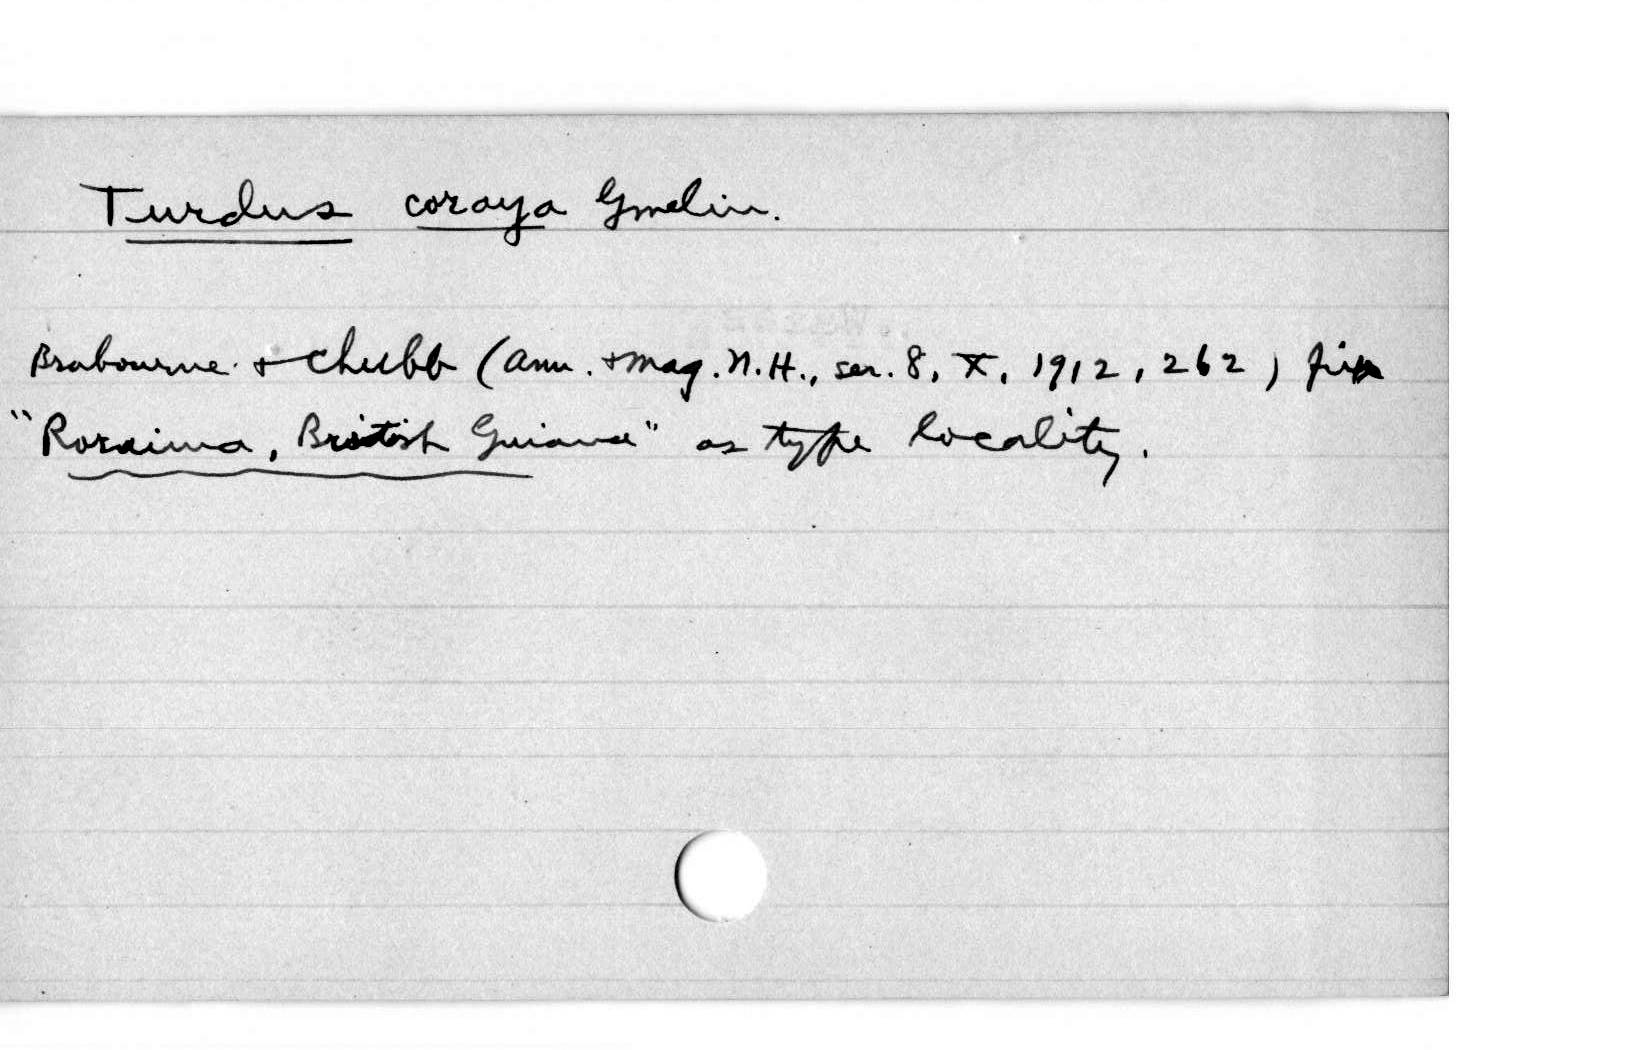 Turdus coraya Gmelin.
Brabourne & Chubb (Ann. & Mag. N.H., ser. 8, X, 1912, 262) fix
"Roraima, British Guiana" as type locality.